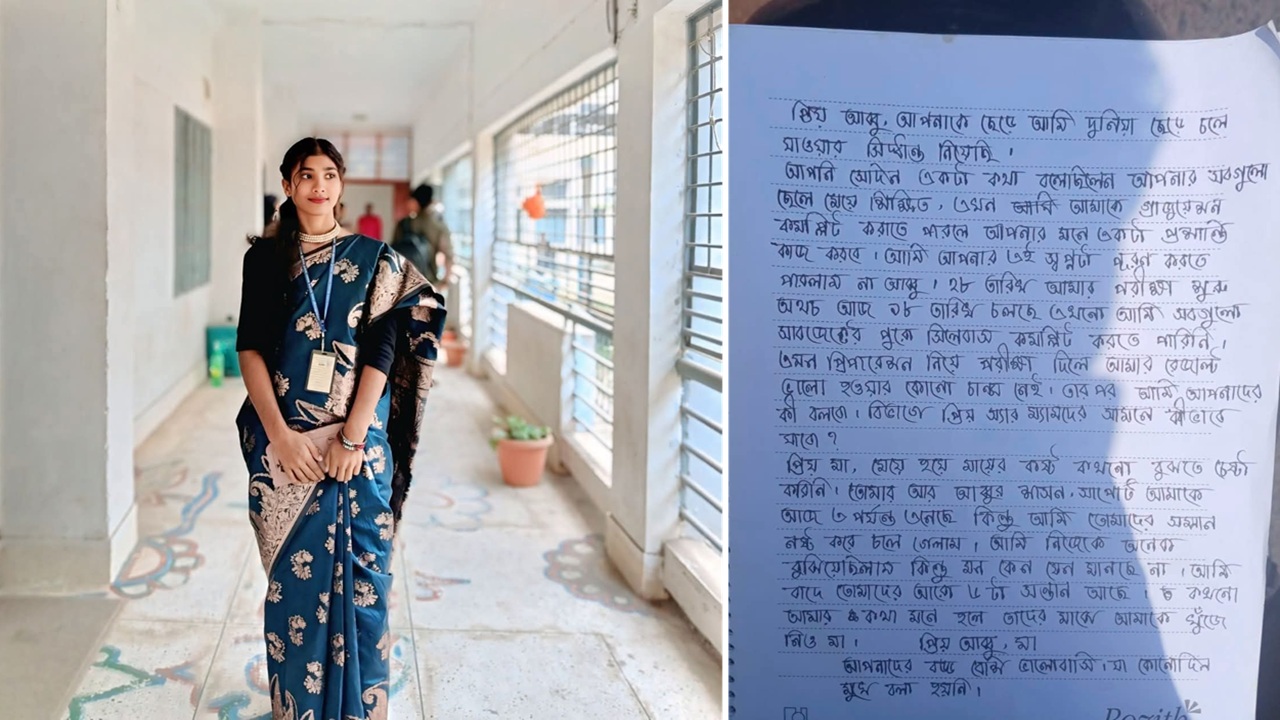 প্রিয় আব্বু, আপনাকে ছেড়ে আমি দুনিয়া ছেড়ে চলে
যাওয়ার সিদ্ধান্ত নিয়েছি।
আপনি সেদিন একটা কথা বলেছিলেন আপনার সবগুলো
ছেলে মেয়ে শিক্ষিত, এখন আমাকে গ্রাজুয়েশন
কমপ্লিট করাতে পারলে আপনার মনে একটা প্রশান্তি
কাজ করবে। আমি আপনার এই স্বপ্নটা পূরণ করতে
পারলাম না আব্বু। ২৮ তারিখ আমার পরীক্ষা শুরু
অথচ আজ ১৮ তারিখ চলছে এখনো আমি সবগুলো
সাবজেক্টের পুরো সিলেবাস কমপ্লিট করতে পারিনি।
এমন প্রিপারেশন নিয়ে পরীক্ষা দিলে আমার রেজাল্ট
ভালো হওয়ার কোনো চান্স নেই। তারপর আমি আপনাদের
কী বলবো। বিভাগে প্রিয় স্যার ম্যামদের সামনে কীভাবে
যাবো?
প্রিয় মা, মেয়ে হয়ে মায়ের কষ্ট কখনো বুঝতে চেষ্টা
করিনি। তোমার আর আব্বুর শাসন, সাপোর্ট আমাকে
আজ এ পর্যন্ত এনেছে কিন্তু আমি তোমাদের সম্মান
নষ্ট করে চলে গেলাম। আমি নিজেকে অনেক
বুঝিয়েছিলাম কিন্তু মন কেন যেন মানছে না। আমি
বাদে তোমাদের আরো ৫টা সন্তান আছে। কখনো
আমার কথা মনে হলে তাদের মাঝে আমাকে খুঁজে
নিও মা। প্রিয় আব্বু, মা
আপনাদের বড্ড বেশি ভালোবাসি, যা কোনোদিন
মুখে বলা হয়নি।